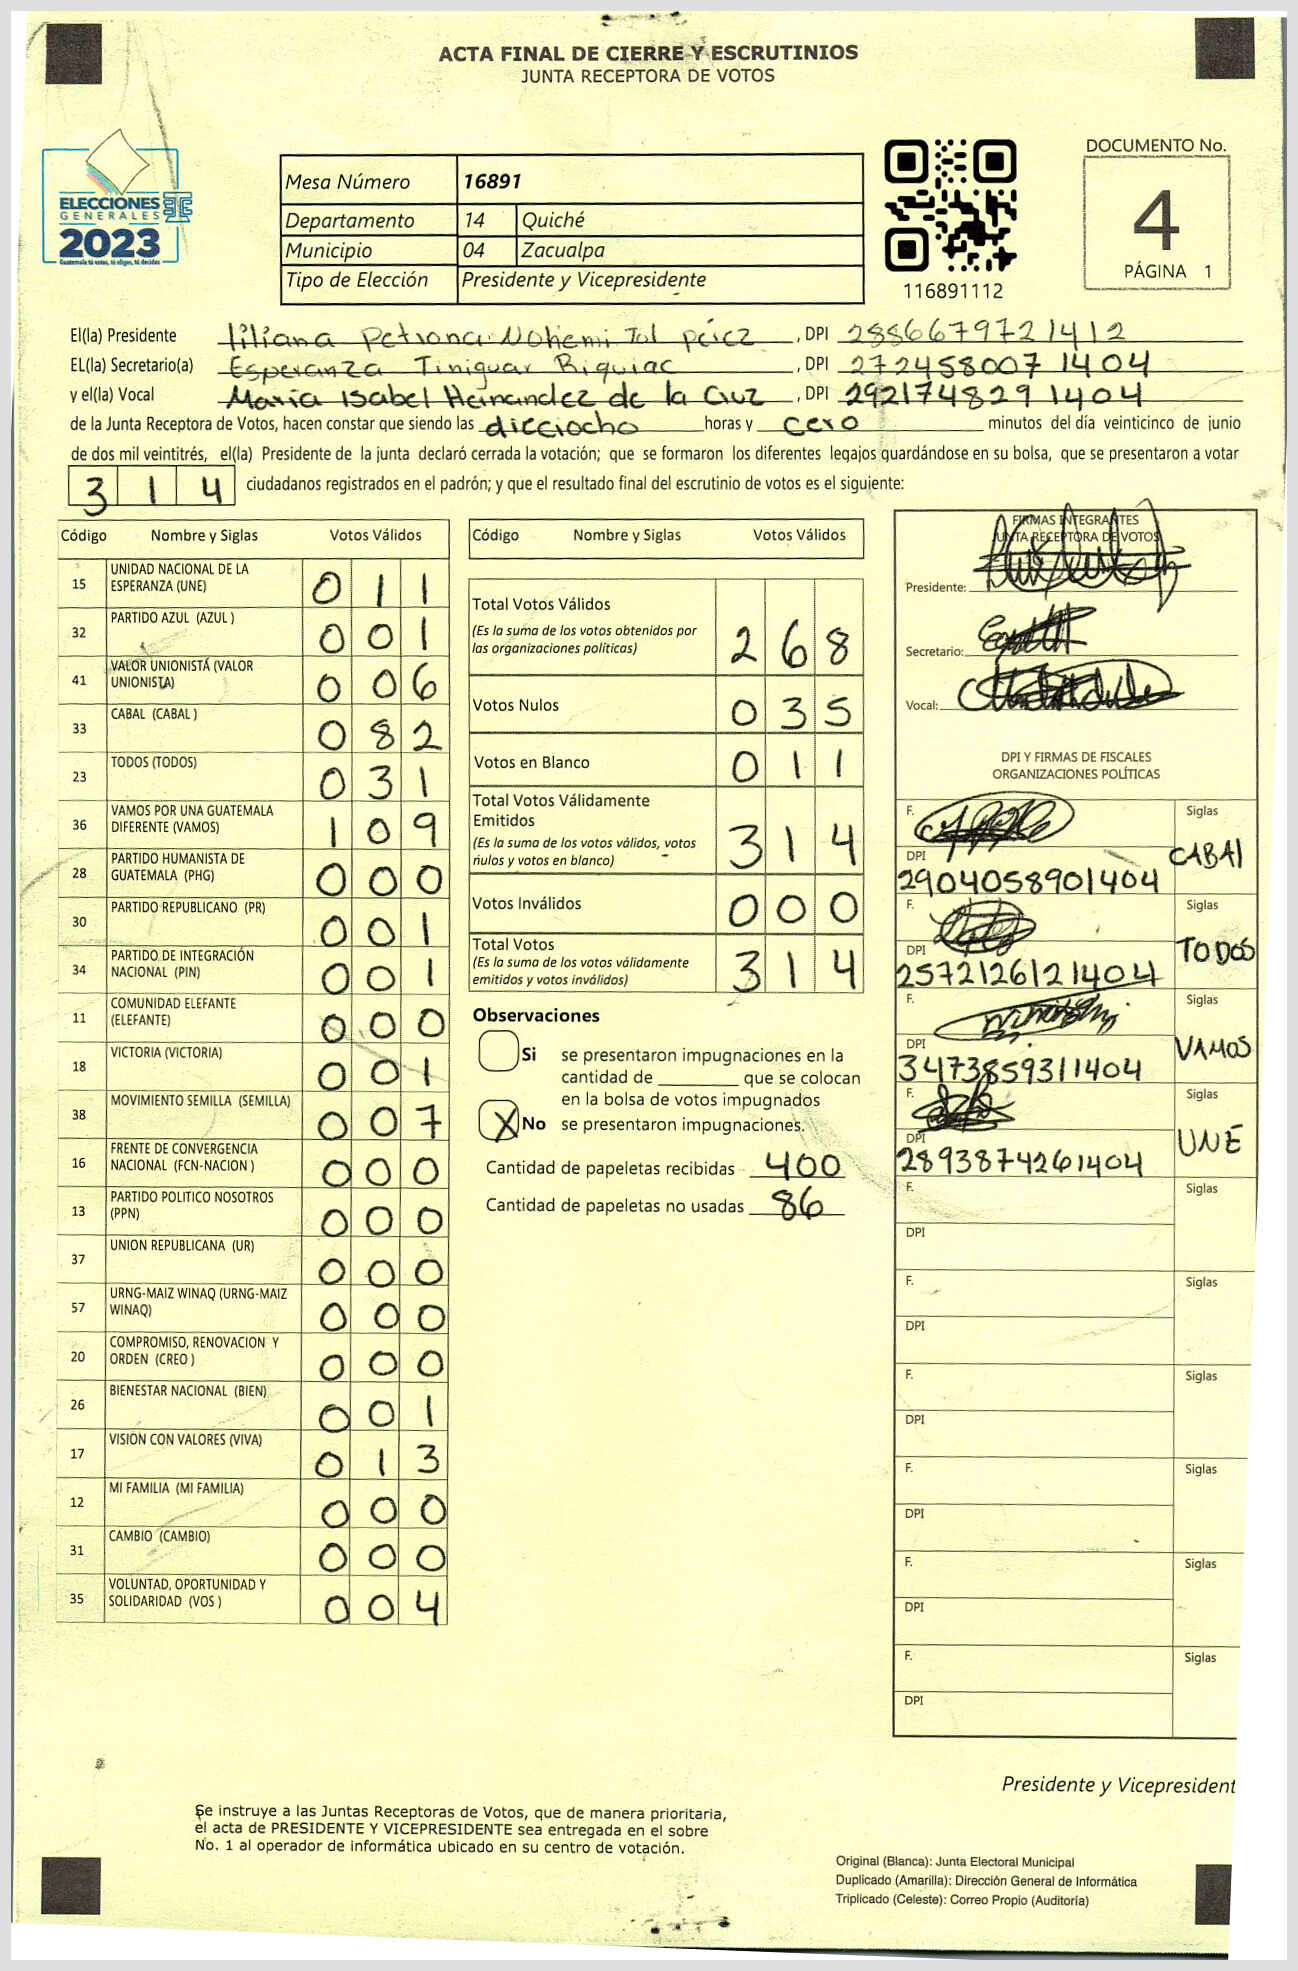 ACTA FINAL DE CIERRE Y ESCRUTINIOS
JUNTA RECEPTORA DE VOTOS
ELECCIONES
GENERALES
2023
Guatemala tú votas, tú eliges, tú decides
Mesa Número 16891
Departamento 14 Quiché
Municipio 04 Zacualpa
Tipo de Elección Presidente y Vicepresidente
116891112
DOCUMENTO No.
4
PÁGINA 1
El(la) Presidente liliana Petrona Nohemi Tol pérez , DPI 288667972 1412
EL(la) Secretario(a) Esperanza Tiniguar Riquiac , DPI 272458007 1404
y el(la) Vocal Maria Isabel Hernandez de la Cruz , DPI 292174829 1404
de la Junta Receptora de Votos, hacen constar que siendo las dieciocho horas y cero minutos del día veinticinco de junio
de dos mil veintitrés, el(la) Presidente de la junta declaró cerrada la votación; que se formaron los diferentes legajos guardándose en su bolsa, que se presentaron a votar
314 ciudadanos registrados en el padrón; y que el resultado final del escrutinio de votos es el siguiente:
Código Nombre y Siglas Votos Válidos
15 UNIDAD NACIONAL DE LA ESPERANZA (UNE) 011
32 PARTIDO AZUL (AZUL ) 001
41 VALOR UNIONISTA (VALOR UNIONISTA) 006
33 CABAL (CABAL ) 082
23 TODOS (TODOS) 031
36 VAMOS POR UNA GUATEMALA DIFERENTE (VAMOS) 109
28 PARTIDO HUMANISTA DE GUATEMALA (PHG) 000
30 PARTIDO REPUBLICANO (PR) 001
34 PARTIDO DE INTEGRACIÓN NACIONAL (PIN) 001
11 COMUNIDAD ELEFANTE (ELEFANTE) 000
18 VICTORIA (VICTORIA) 001
38 MOVIMIENTO SEMILLA (SEMILLA) 007
16 FRENTE DE CONVERGENCIA NACIONAL (FCN-NACION ) 000
13 PARTIDO POLITICO NOSOTROS (PPN) 000
37 UNION REPUBLICANA (UR) 000
57 URNG-MAIZ WINAQ (URNG-MAIZ WINAQ) 000
20 COMPROMISO, RENOVACION Y ORDEN (CREO ) 000
26 BIENESTAR NACIONAL (BIEN) 001
17 VISION CON VALORES (VIVA) 013
12 MI FAMILIA (MI FAMILIA) 000
31 CAMBIO (CAMBIO) 000
35 VOLUNTAD, OPORTUNIDAD Y SOLIDARIDAD (VOS ) 004
Código Nombre y Siglas Votos Válidos
Total Votos Válidos 268
(Es la suma de los votos obtenidos por
las organizaciones políticas)
Votos Nulos 035
Votos en Blanco 011
Total Votos Válidamente
Emitidos 314
(Es la suma de los votos válidos, votos
nulos y votos en blanco)
Votos Inválidos 000
Total Votos 314
(Es la suma de los votos válidamente
emitidos y votos inválidos)
Observaciones
Si se presentaron impugnaciones en la
cantidad de ________ que se colocan
en la bolsa de votos impugnados
X No se presentaron impugnaciones.
Cantidad de papeletas recibidas 400
Cantidad de papeletas no usadas 86
FIRMAS INTEGRANTES
JUNTA RECEPTORA DE VOTOS
Presidente:
Secretario:
Vocal:
DPI Y FIRMAS DE FISCALES
ORGANIZACIONES POLÍTICAS
F. Siglas CABAl
DPI 2904058901404
F. Siglas TODOS
DPI 2572126121404
F. Siglas VAMOS
DPI 3473859311404
F. Siglas UNE
DPI 2893874261404
F. Siglas
DPI
F. Siglas
DPI
F. Siglas
DPI
F. Siglas
DPI
F. Siglas
DPI
F. Siglas
DPI
Presidente y Vicepresident
Se instruye a las Juntas Receptoras de Votos, que de manera prioritaria,
el acta de PRESIDENTE Y VICEPRESIDENTE sea entregada en el sobre
No. 1 al operador de informática ubicado en su centro de votación.
Original (Blanca): Junta Electoral Municipal
Duplicado (Amarilla): Dirección General de Informática
Triplicado (Celeste): Correo Propio (Auditoría)